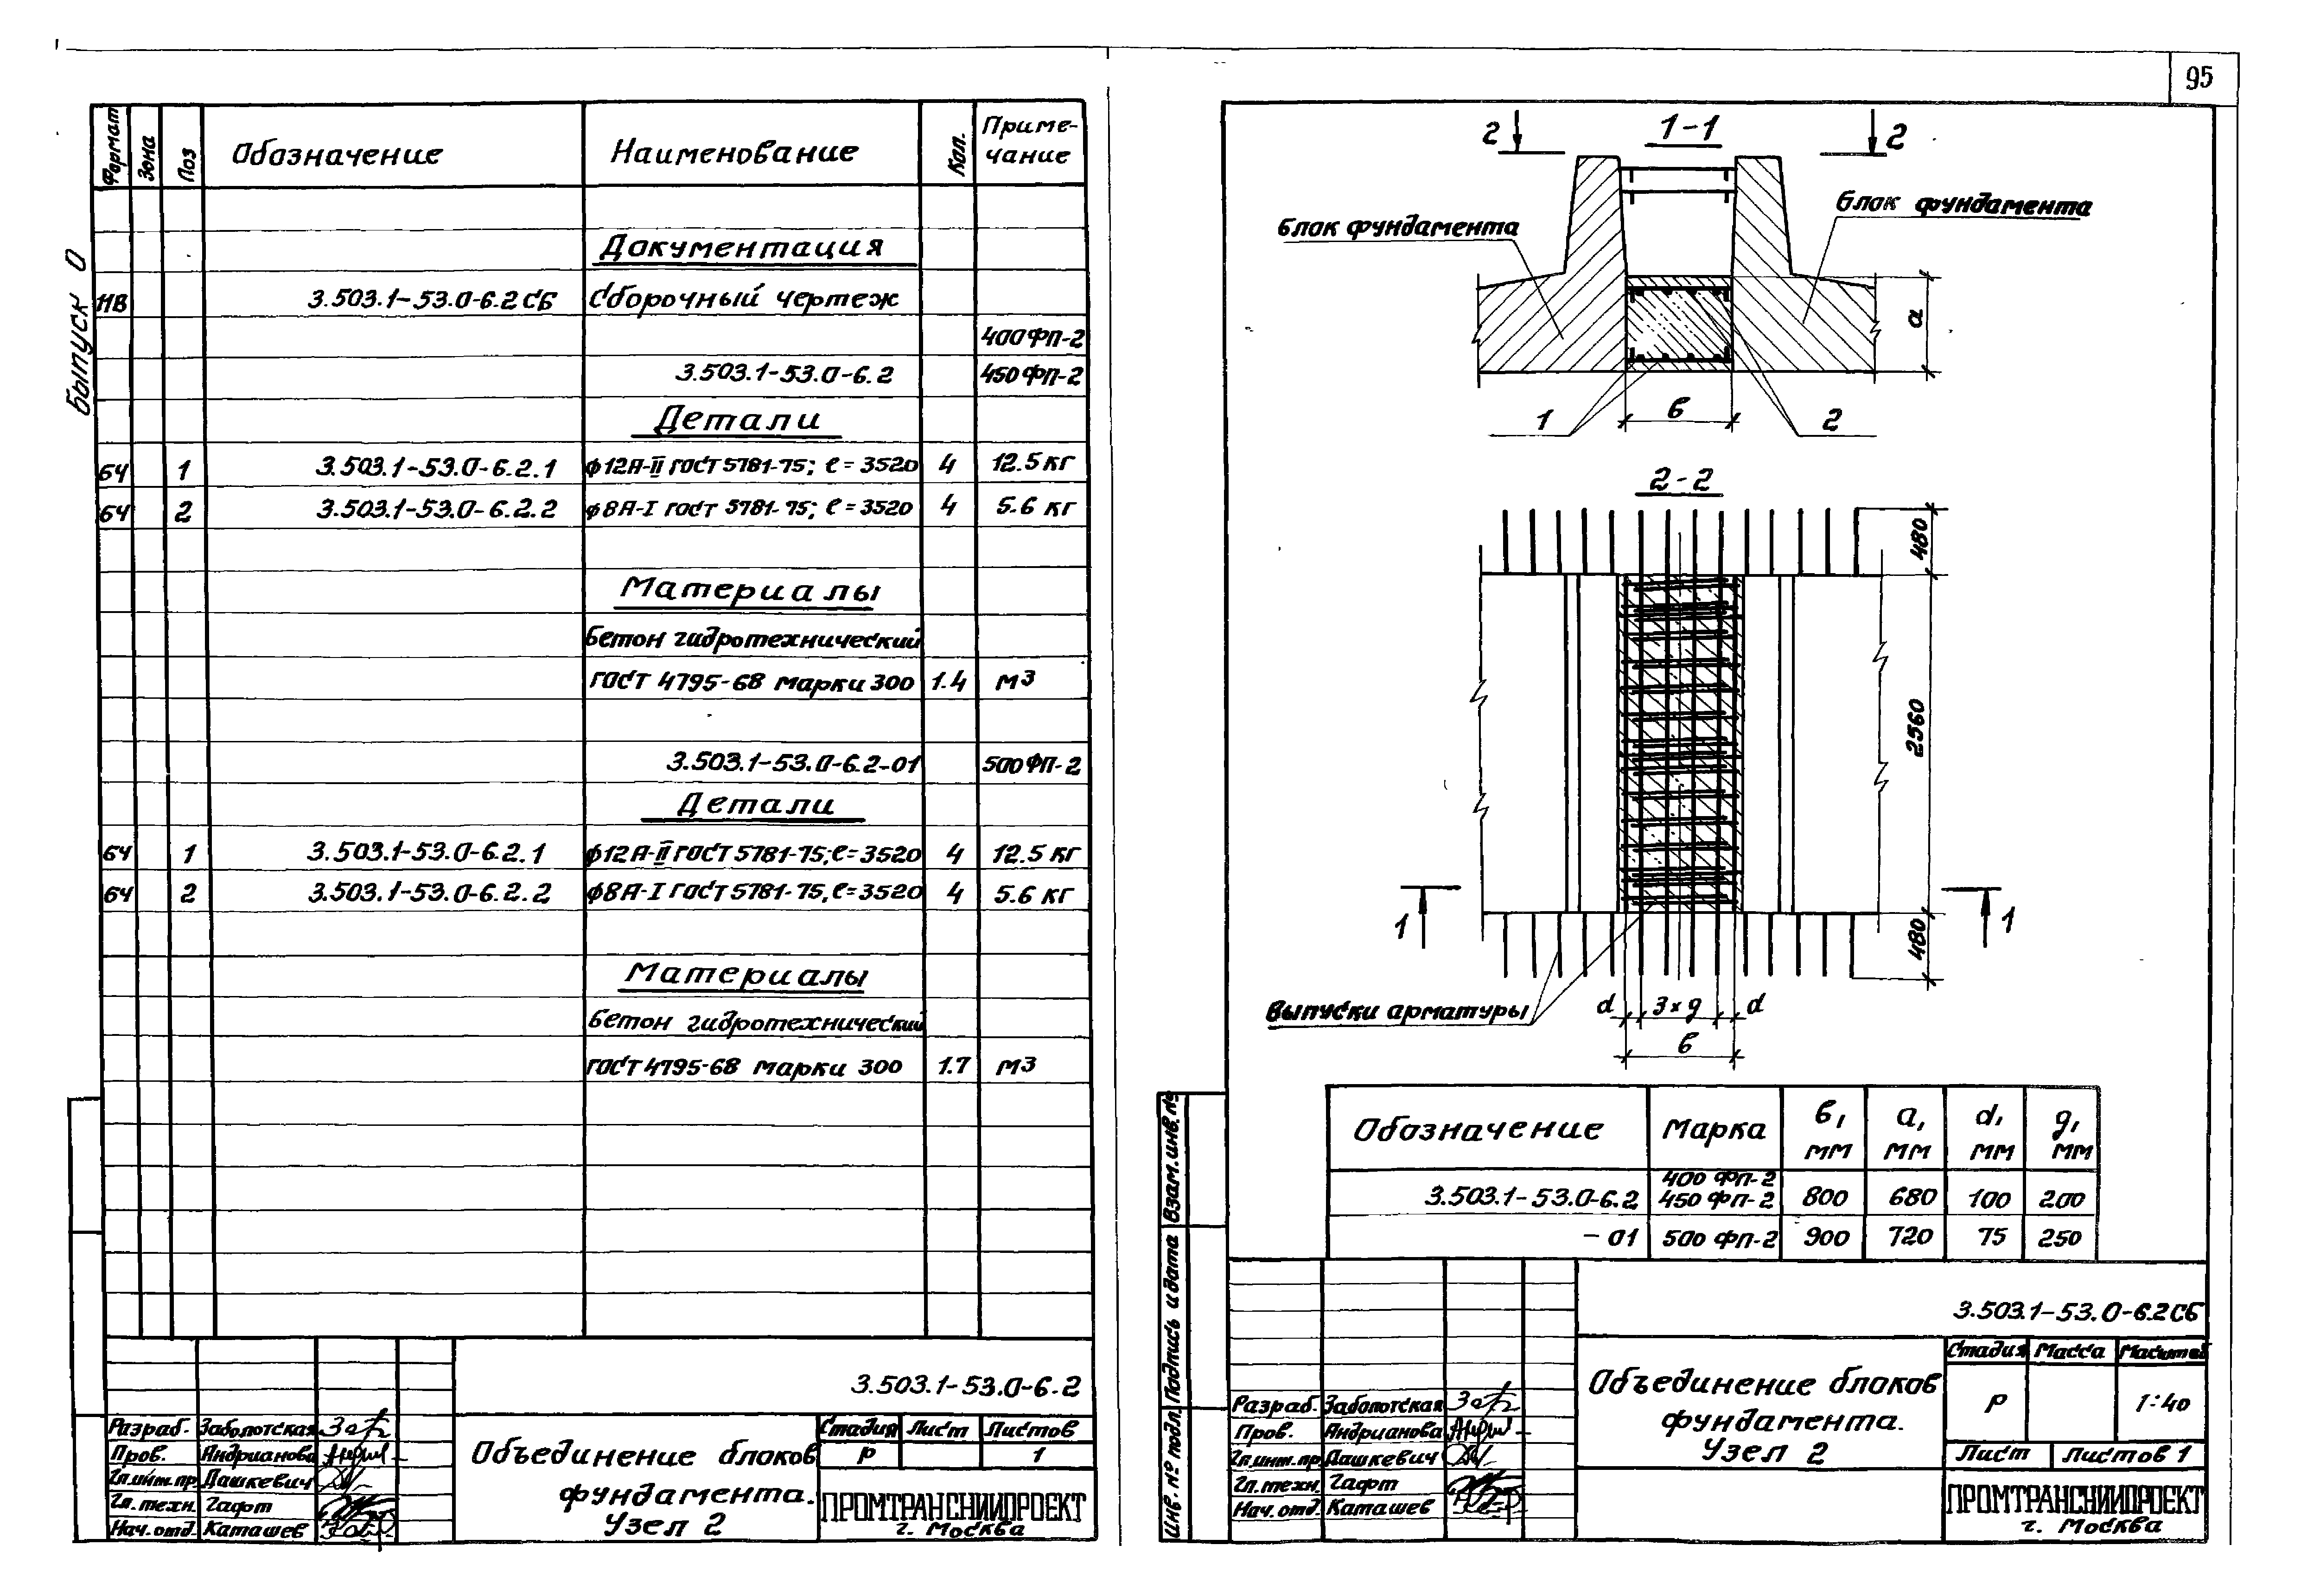 95
Выпуск 0
Формат Зона Поз Обозначение Наименование Кол. Приме-
чание
Документация
НВ 3.503.1-53.0-6.2СБ Сборочный чертеж
400ФП-2
3.503.1-53.0-6.2 450ФП-2
Детали
БЧ 1 3.503.1-53.0-6.2.1 ф12А-II ГОСТ 5781-75; ℓ=3520 4 12.5кг
БЧ 2 3.503.1-53.0-6.2.2 ф8А-I ГОСТ 5781-75; ℓ=3520 4 5.6 кг
Материалы
Бетон гидротехнический
ГОСТ 4795-68 марки 300 1.4 м3
3.503.1-53.0-6.2-01 500ФП-2
Детали
БЧ 1 3.503.1-53.0-6.2.1 ф12А-II ГОСТ 5781-75; ℓ=3520 4 12.5 кг
БЧ 2 3.503.1-53.0-6.2.2 ф8А-I ГОСТ 5781-75, ℓ=3520 4 5.6 кг
Материалы
Бетон гидротехнический
ГОСТ 4795-68 марки 300 1.7 м3
3.503.1-53.0-6.2
Разраб. Заболотская
Пров. Андрианова
Гл.инж.пр. Дашкевич
Гл.техн. Гафт
Нач.отд. Каташев
Объединение блоков
фундамента.
Узел 2
Стадия Лист Листов
Р 1
ПРОМТРАНСНИИПРОЕКТ
г. Москва
1-1
2 2
Блок фундамента
Блок фундамента
а
в
1 2
2-2
480
2560
480
1 1
Выпуски арматуры
d 3×g d
в
Обозначение Марка в, мм а, мм d, мм g, мм
400 ФП-2
3.503.1-53.0-6.2 450 ФП-2 800 680 100 200
-01 500 ФП-2 900 720 75 250
Инв. № подл. Подпись и дата Взам. инв. №
3.503.1-53.0-6.2СБ
Разраб. Заболотская
Пров. Андрианова
Гл.инж.пр. Дашкевич
Гл.техн. Гафт
Нач.отд. Каташев
Объединение блоков
фундамента.
Узел 2
Стадия Масса Масштаб
Р 1:40
Лист Листов 1
ПРОМТРАНСНИИПРОЕКТ
г. Москва